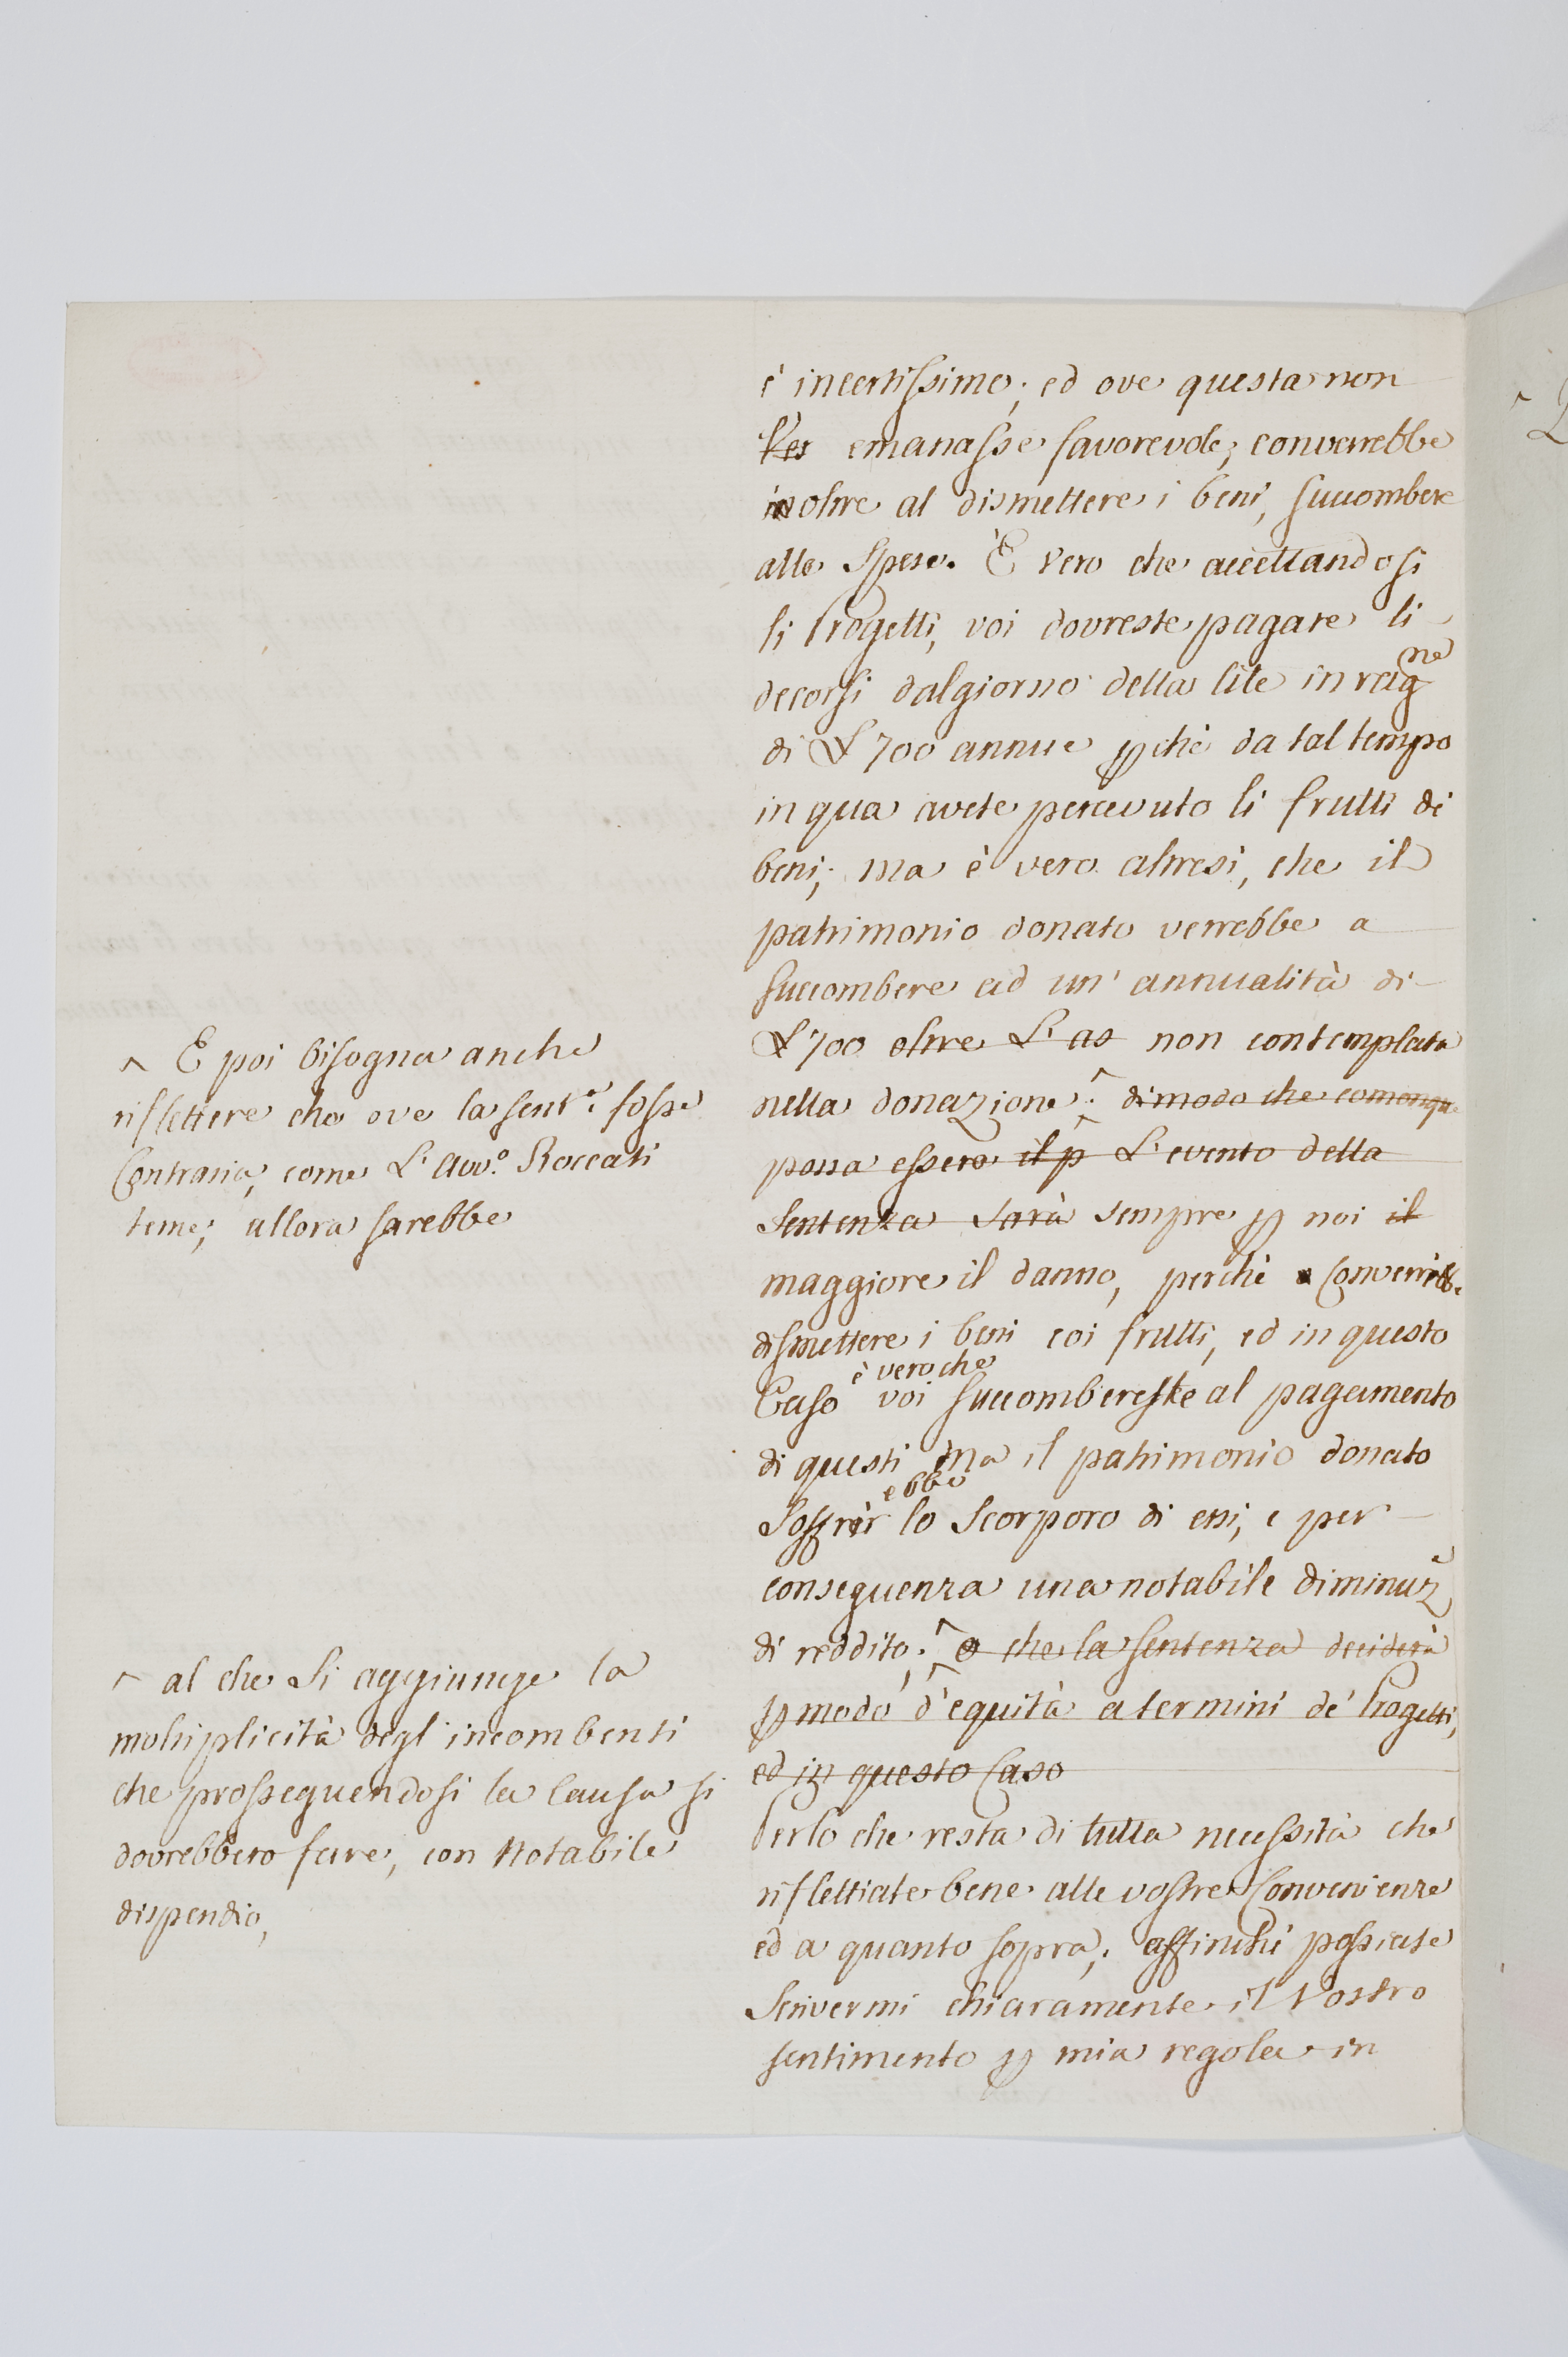 è incertissimo; ed ove questa non
emanasse favorevole; converrebbe
inoltre al dismettere i beni, succombere
alle Spese. È vero che accettandosi
li Progetti, voi dovreste pagare li
decorsi dal giorno della lite in ragne
di L 700 annue pchè da tal tempo
in qua avete percevuto li frutti di
beni; ma è vero altresì, che il
patrimonio donato verrebbe a
succombere ad un' annualità di
L 700 oltre L' as non contemplata
nella donazione; ^ di modo che comonque
possa essere il p L' evento della
Sentenza Sarà sempre p noi il
maggiore il danno, perchè Converrebbe
dismettere i beni coi frutti, ed in questo
è vero che
Caso voi succombereste al pagamento
di questi ma il patrimonio donato
ebbe
Soffrir lo Scorporo di essi, e per
conseguenza una notabile diminuz
di reddito; ^ o che la Sentenza deciderà
p modo d' equità a termini de' Progetti,
ed in questo Caso
Perlo che resta di tutta necessità che
riflettiate bene alle vostre Convenienze
ed a quanto sopra; affinchè possiate
Scrivermi chiaramente il Vostro
sentimento p mia regola in
^ E poi bisogna anche
riflettere che ove la sent.a fosse
Contraria, come L' Avv.o Roccati
teme; allora sarebbe
^ al che Si aggiunge la
moltiplicità degl' incombenti
che prosseguendosi la Causa si
dovrebbero fare, con Notabile
dispendio,